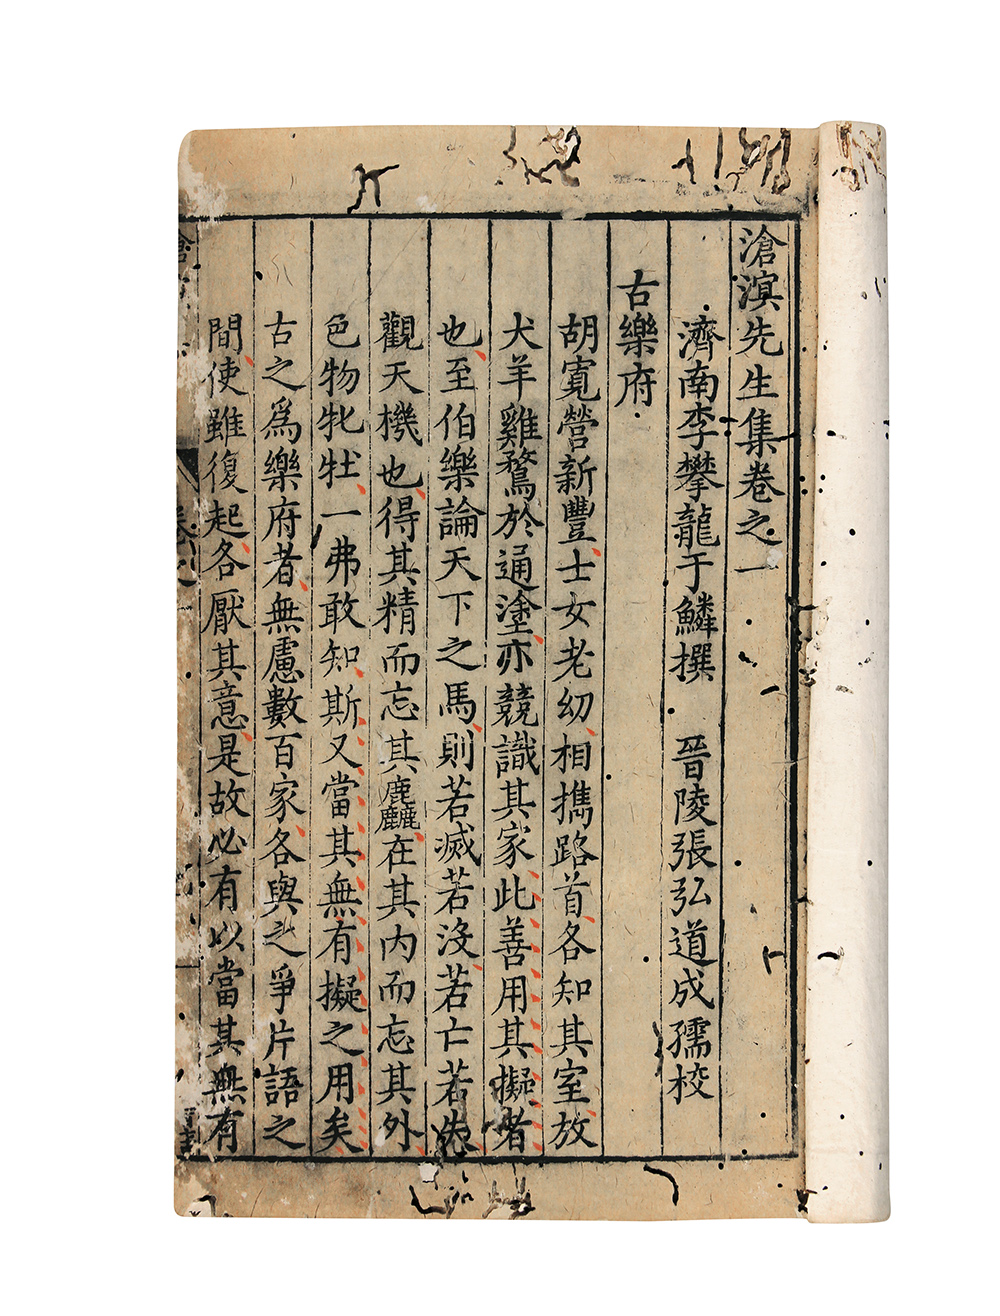 滄溟先生集卷之一
濟南李攀龍于鱗撰　晉陵張弘道成孺校
古樂府
胡寬營新豐士女老幼相攜路首各知其室放
犬羊雞鶩於通塗亦競識其家此善用其擬者
也至伯樂論天下之馬則若滅若沒若亡若失
觀天機也得其精而忘其麤在其內而忘其外
色物牝牡一弗敢知斯又當其無有擬之用矣
古之爲樂府者無慮數百家各與之爭片語之
間使雖復起各厭其意是故必有以當其無有